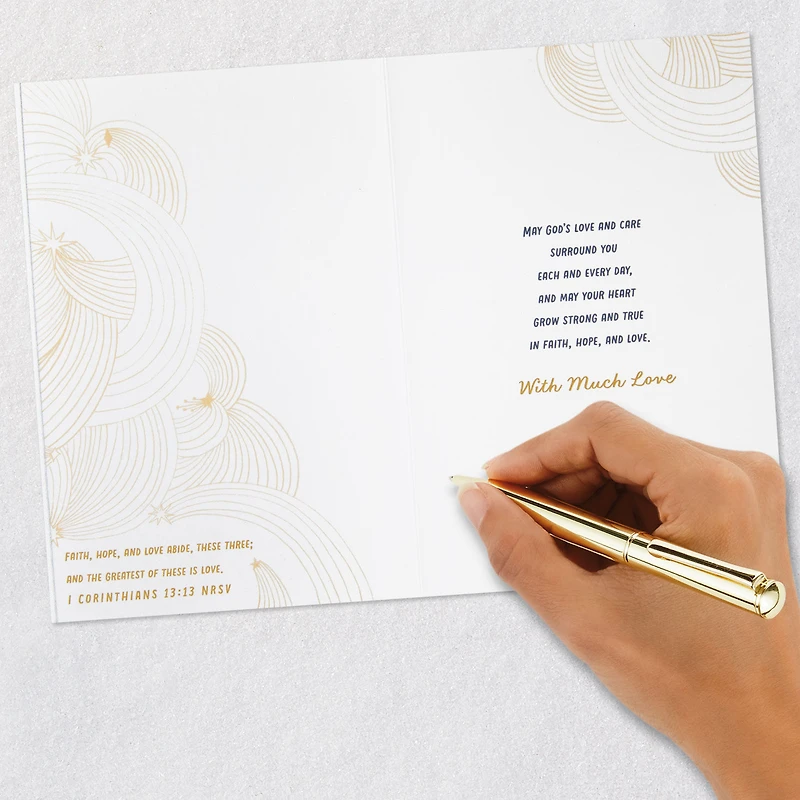 FAITH, HOPE, AND LOVE ABIDE, THESE THREE;
AND THE GREATEST OF THESE IS LOVE.
1 CORINTHIANS 13:13 NRSV
MAY GOD'S LOVE AND CARE
SURROUND YOU
EACH AND EVERY DAY,
AND MAY YOUR HEART
GROW STRONG AND TRUE
IN FAITH, HOPE, AND LOVE.
With Much Love